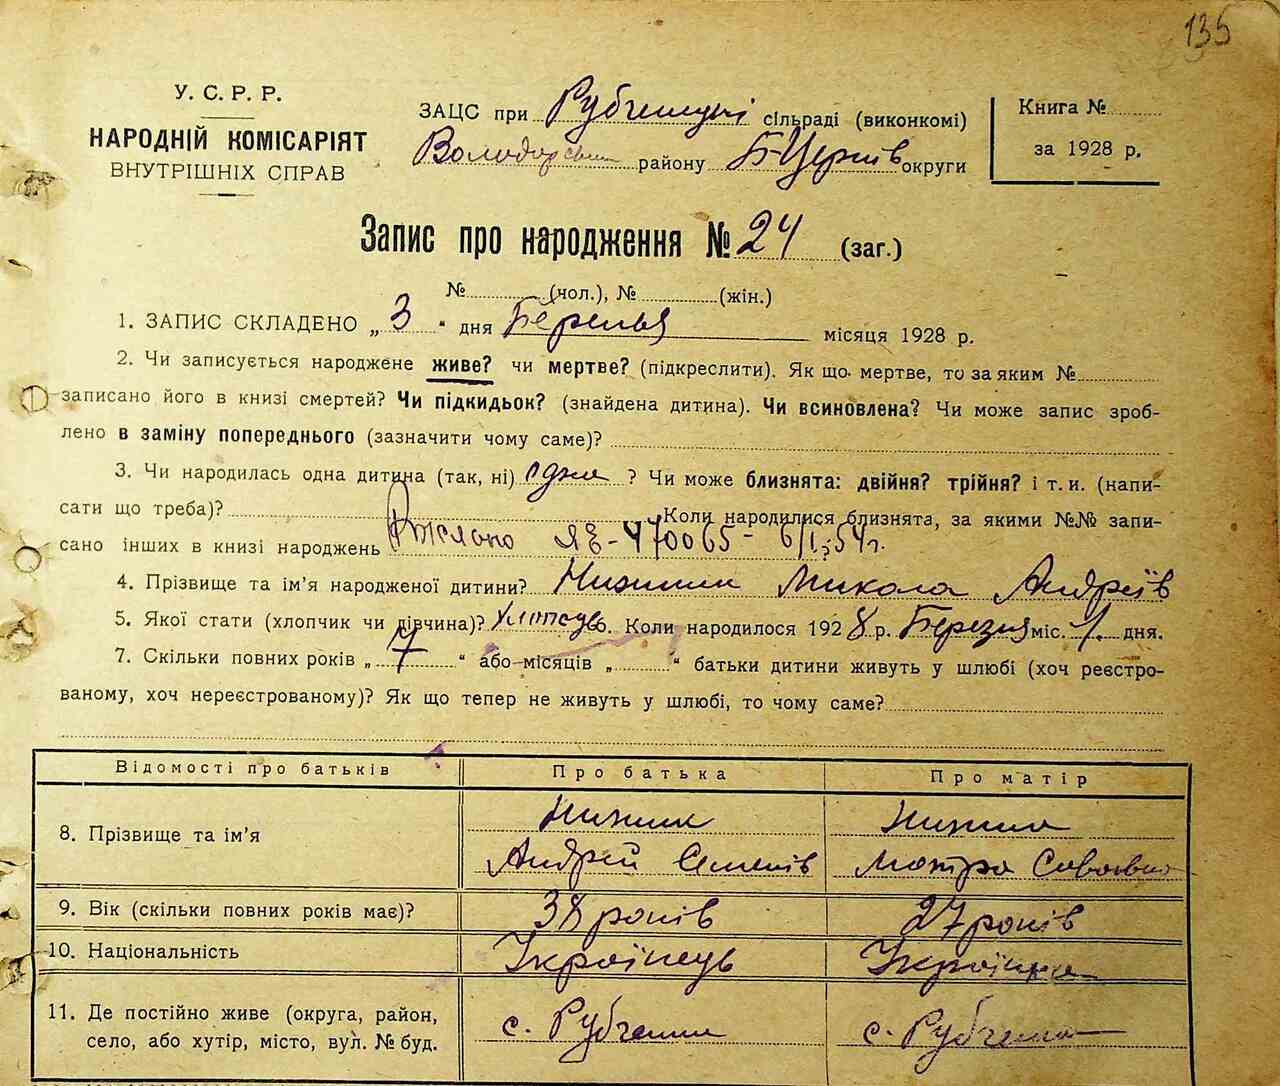 135
У. С. Р. Р.
НАРОДНІЙ КОМІСАРІЯТ
ВНУТРІШНІХ СПРАВ
ЗАЦС при сільраді (виконкомі)
району Б-Церків округи
Книга №
за 1928 р.
Запис про народження № 24 (заг.)
№ (чол.), № (жін.)
1. ЗАПИС СКЛАДЕНО „3“ дня місяця 1928 р.
2. Чи записується народжене живе? чи мертве? (підкреслити). Як що мертве, то за яким №
записано його в книзі смертей? Чи підкидьок? (знайдена дитина). Чи всиновлена? Чи може запис зроб-
лено в заміну попереднього (зазначити чому саме)?
3. Чи народилась одна дитина (так, ні) одна ? Чи може близнята: двійня? трійня? і т. и. (напи-
сати що треба)? Коли народилися близнята, за якими №№ запи-
сано інших в книзі народжень ЯЕ-470065-
4. Прізвище та ім’я народженої дитини? Нижник Микола Андріїв
5. Якої стати (хлопчик чи дівчина)? хлопець 6. Коли народилося 1928 р. Березня міс. 1. дня.
7. Скільки повних років „7“ або місяців „ “ батьки дитини живуть у шлюбі (хоч реєстро-
ваному, хоч нереєстрованому)? Як що тепер не живуть у шлюбі, то чому саме?
Відомості про батьків Про батька Про матір
8. Прізвище та ім’я Нижник Нижник
Андрій Семенів Мотра
9. Вік (скільки повних років має)? 38 років 27 років
10. Національність Українець Українка
11. Де постійно живе (округа, район, с. Рубченки с. Рубченки
село, або хутір, місто, вул. № буд.